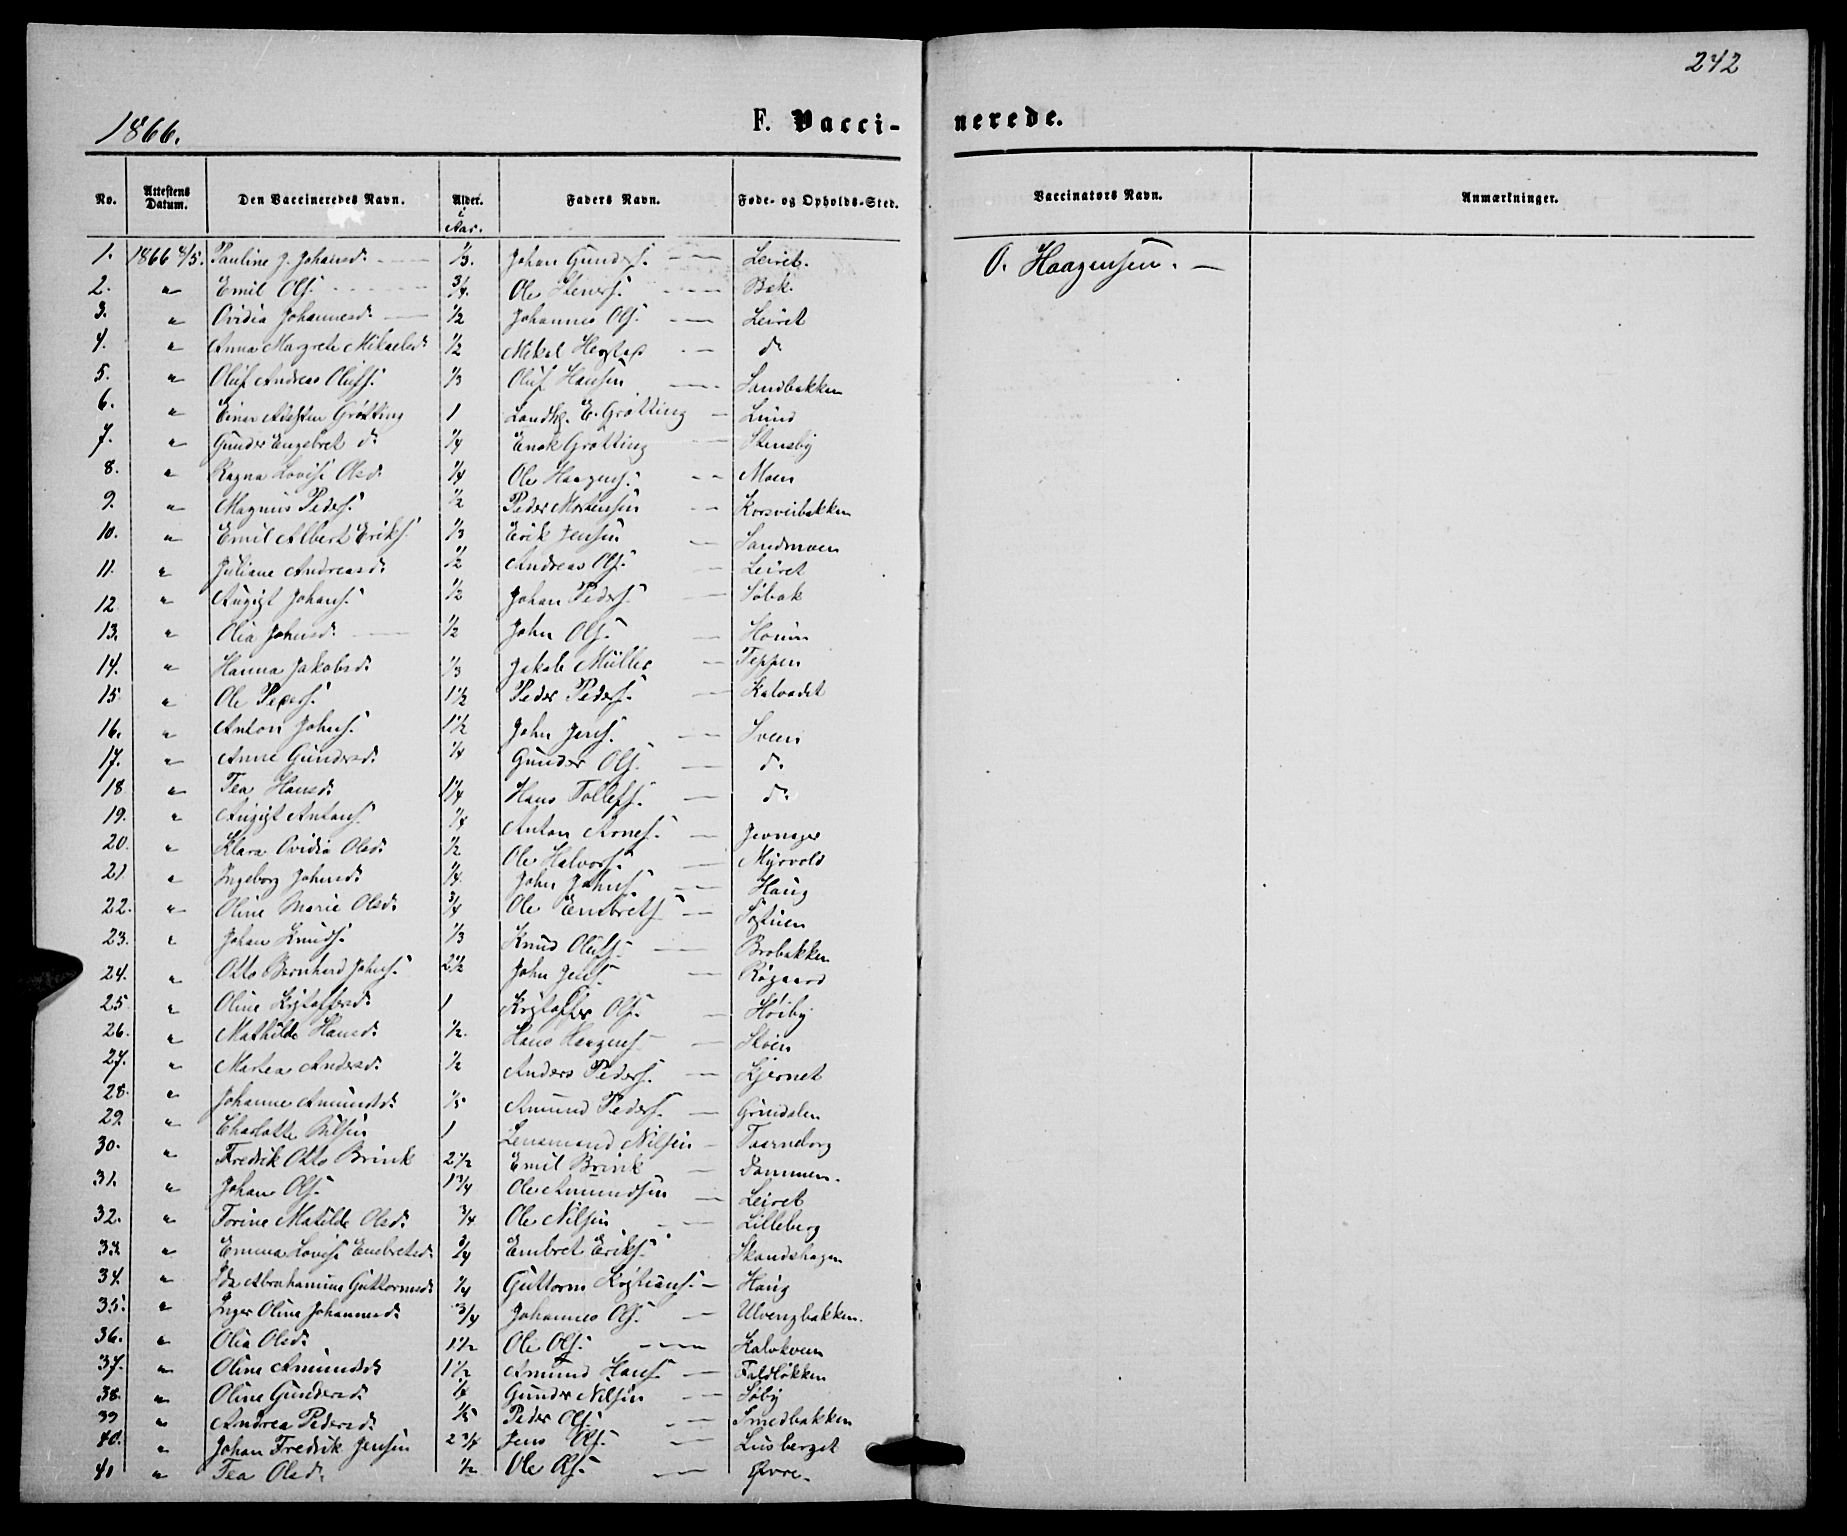 242
1866.
F. Vaccinerede.
No. Attestens Datum. Den Vaccineredes Navn. Alder. i Aar. Faders Navn. Føde- og Opholds-Sted. Vaccinators Navn. Anmærkninger.
1. 1866 4/5. Pauline J. Johansd. 1/3. Johan Gunders. Leiret. O. Haagensen.
2. " Emil Ols. 3/4. Ole Steners. Bak
3. " Ovidia Johannesd. 1/2 Johannes Ols. Leiret
4. " Anna Margrete Mikaelsd. 1/2 Mikal d.
5. " Oluf Andreas Olufs. 1/3 Oluf Hansen Sandbakken
6. " Einar Grötting 1 Landh. E. Grötting Lund
7. " Gunder Engebret d. 1/4 Enok Grotting Stensby
8. " Ragna Lovise Olsd. 1/4 Ole Haagens. Moen
9. " Magnus Peders. 1/2 Peder Mortensen Korsveibakken
10. " Emil Albert Eriks. 1/3 Erik Jensen Sandmoen
11. " Juliane Andreasd. 1/2 Andreas Ols. Leiret
12 " August Johans. 1/2 Johan Peders. Söbak
13. " Olia Johnsd. 1/2 John Ols.
14. " Hanna Jakobsd. 1/3 Jakob Müller Teppen
15 " Ole Peders. 1 1/2 Peder Peders. Kalvadet
16. " Anton Johns. 1 1/2 John Jens. Sveen
17. " Anne Gundersd. 1/4 Gunder Ols. d.
18 " Tea Hansd. 1 1/4 Hans Tollefs. d.
19. " August Antons. 1/4 Anton Arnes. Jevnager
20. " Klara Ovidia Olsd. 1/2 Ole Halvors. Myrvold
21 " Ingeborg Johnsd. 1/4 John Johns. Haug
22. " Oline Marie Olsd. 3/4 Ole Embrets. Sostuen
23. " Johan Knuds. 1/3 Knud Olufs. Brobakken
24. " Otto Bernhard Johns. 2 1/2 John Jens. Rogaard
25 " Oline Kristoffersd. 1 Kristoffer Ols. Höiby
26. " Mathilde Hansd. 1/2. Hans Haagens. Stöen
27. " Martea Andersd. 1/2 Anders Peders. Kjernet
28. " Johanne Amundsd. 1/5 Amund Peders. Grindalen
29 " Charlotte Nilsen 1 Lensmand Nilsen Taarneborg
30. " Fredrik Otto Brink 2 1/2 Emil Brink Dammen.
31. " Johan Ols. 1 3/4 Ole Amundsen Leiret
32. " Torine Matilde Olsd. 3/4 Ole Nilsen Lilleberg
33. " Emma Lovise Embretsd. 3/4 Embret Eriks. Skandshagen
34. " Ida Abrahamine Guttormsd. 1/4 Guttorm Kristians. Haug
35. " Inger Oline Johannesd. 3/4 Johannes Ols. Ulvengbakken.
36. " Olia Olsd. 1 1/2 Ole Ols. Kalvkveen
37. " Oline Amundsd. 1 1/2 Amund Hans. Faldlökken
38. " Oline Gundersd. 1/4 Gunder Nilsen Söby
39 " Andrea Pedersd. 1/5 Peder Ols. Smedbakken
40. " Johan Fredrik Jensen 2 3/4 Jens Ols. Lusberget
40 " Tea Olsd. 1/2 Ole Ols. Øvre